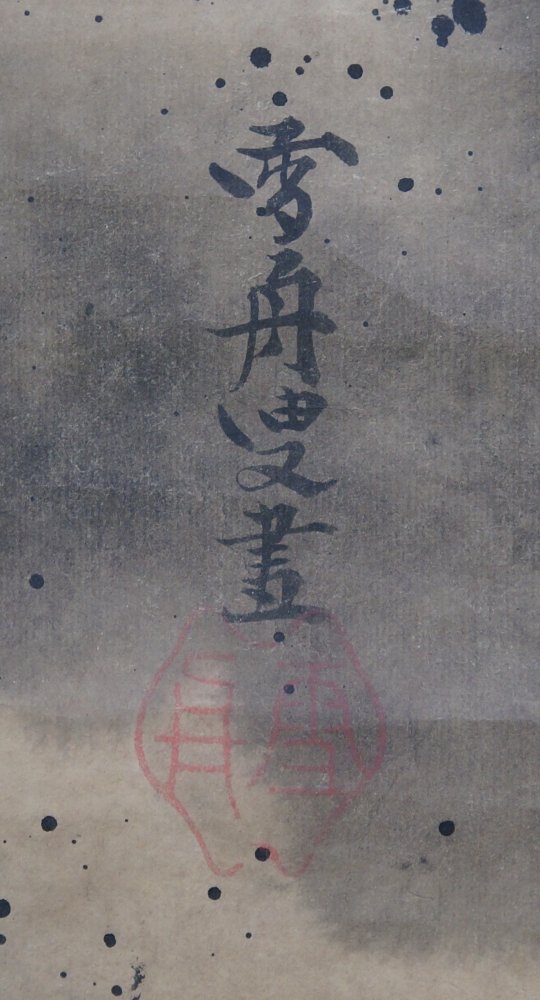 雪舟叟畫
雪舟